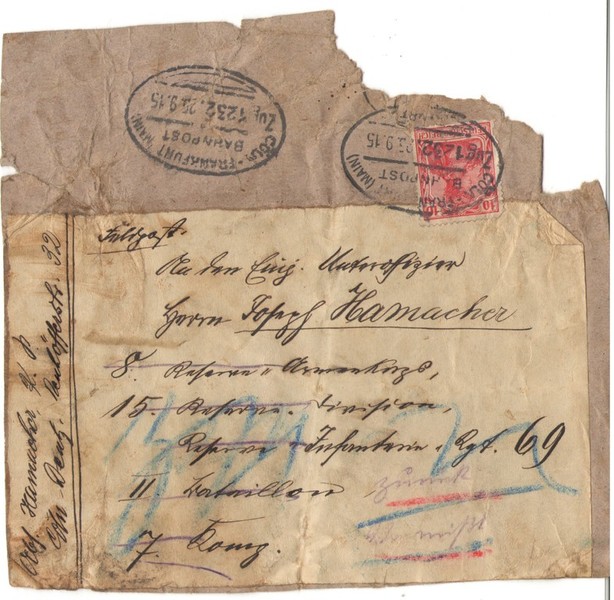 CÖLN - FRANKFURT (MAIN)
BAHNPOST
Zug 1232. 23.9.15
CÖLN - FRANKFURT (MAIN)
BAHNPOST
Zug 1232. 23.9.15
10 10
Feldpost.
An den Einj. Unteroffizier
Herrn Joseph Hamacher
8. Reserve-Armeekorps,
15. Reserve-Division,
Reserve-Infanterie-Rgt. 69
II Bataillon
7. Komp.
zurück
Abs. Hamacher
Cöln Deutz. 32